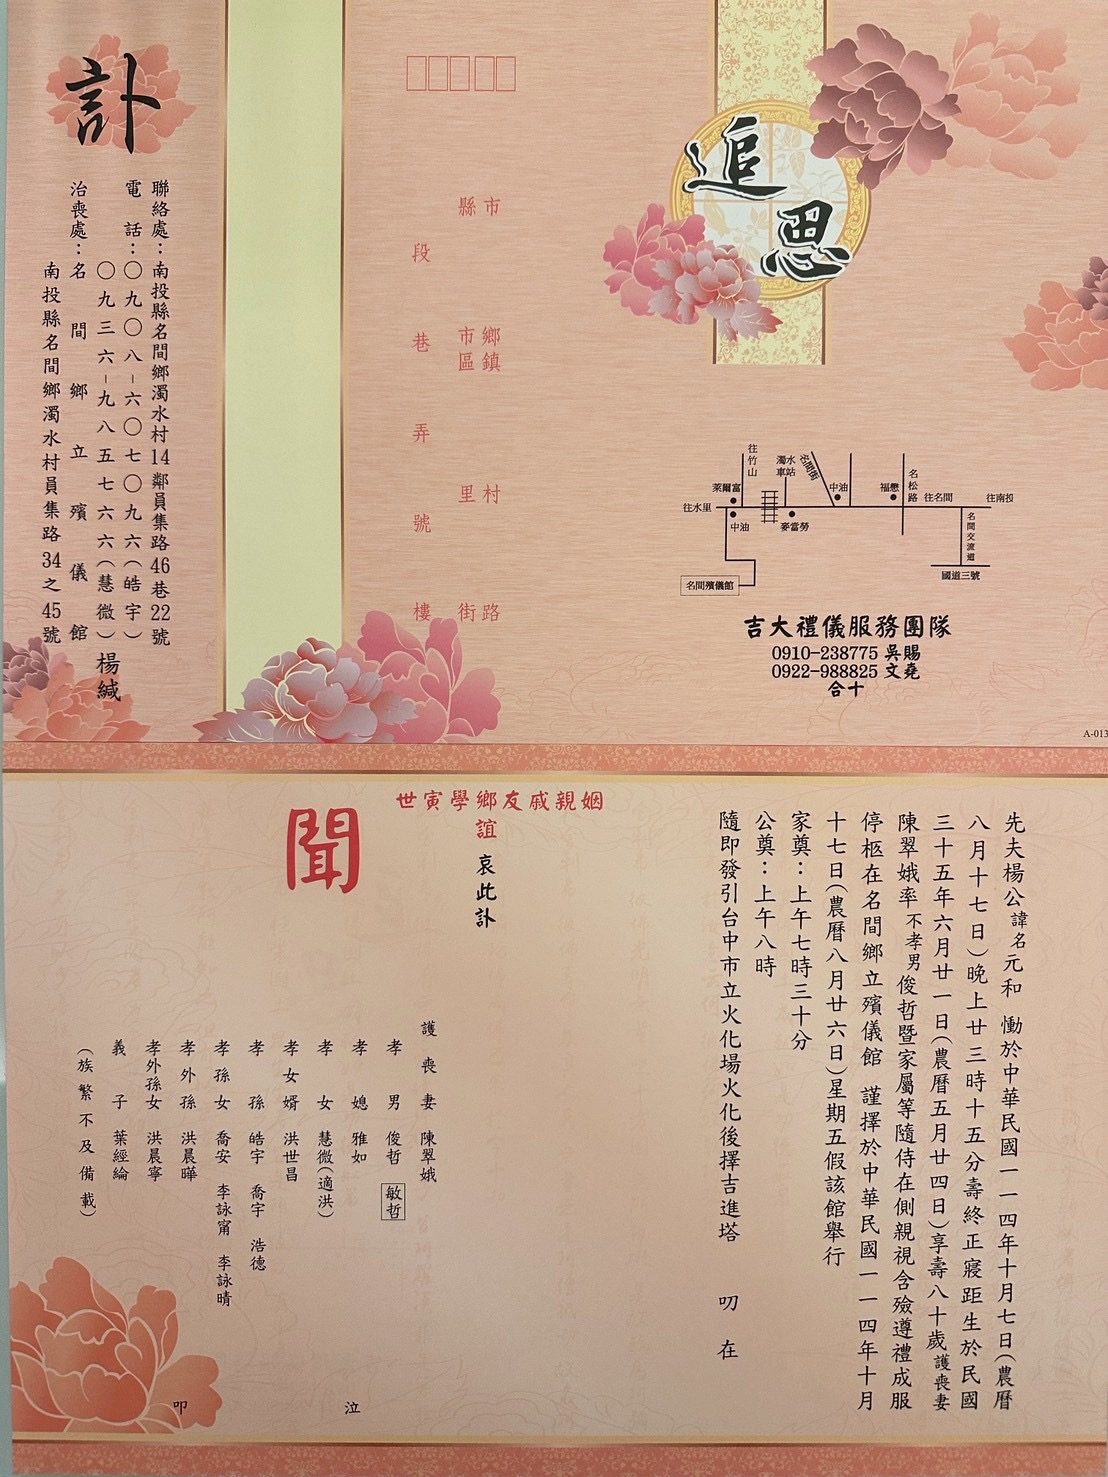 訃
聯絡處：南投縣名間鄉濁水村14鄰員集路46巷22號
電話：〇九〇八-六〇七〇九六(皓宇)
〇九三六-九八五七六六(慧微)
治喪處：名間鄉立殯儀館
南投縣名間鄉濁水村員集路34之45號
楊緘
市
縣
鄉鎮
市區
村
里
路
街
段
巷
弄
號
樓
追思
往竹山
濁水車站
名間街
名松路
萊爾富
中油
福懋
往名間
往南投
往水里
中油
麥當勞
名間交流道
國道三號
名間殯儀館
吉大禮儀服務團隊
0910-238775 吳賜
0922-988825 文堯
合十
A-013
先夫楊公諱名元和 慟於中華民國一一四年十月七日(農曆
八月十七日)晚上廿三時十五分壽終正寢距生於民國
三十五年六月廿一日(農曆五月廿四日)享壽八十歲護喪妻
陳翠娥率不孝男俊哲暨家屬等隨侍在側親視含殮遵禮成服
停柩在名間鄉立殯儀館 謹擇於中華民國一一四年十月
十七日(農曆八月廿六日)星期五假該館舉行
家奠：上午七時三十分
公奠：上午八時
隨即發引台中市立火化場火化後擇吉進塔 叨在
世寅學鄉友戚親姻
誼 哀此訃
聞
護喪妻 陳翠娥
孝男 俊哲 敏哲
孝媳 雅如
孝女 慧微(適洪)
孝女婿 洪世昌
孝孫 皓宇 喬宇 浩德
孝孫女 喬安 李詠甯 李詠晴
孝外孫 洪晨曄
孝外孫女 洪晨寧
義子 葉經綸
(族繁不及備載)
泣
叩